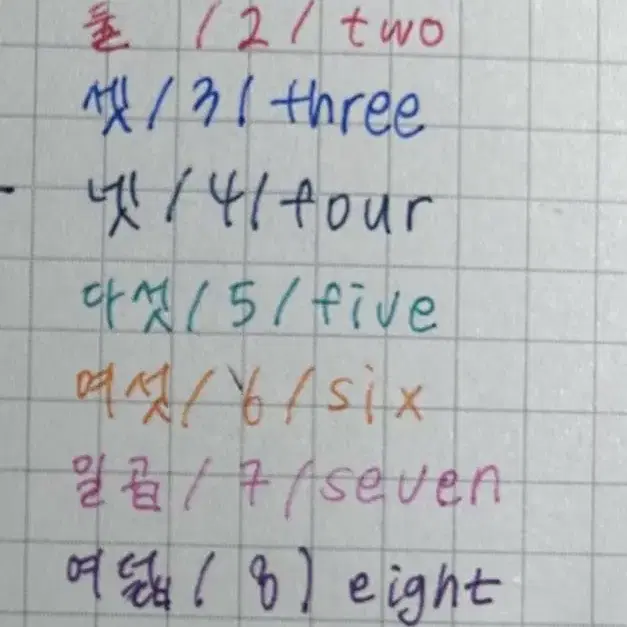 둘 / 2 / two
셋 / 3 / three
넷 / 4 / four
다섯 / 5 / five
여섯 / 6 / six
일곱 / 7 / seven
여덟 ( 8 ) eight